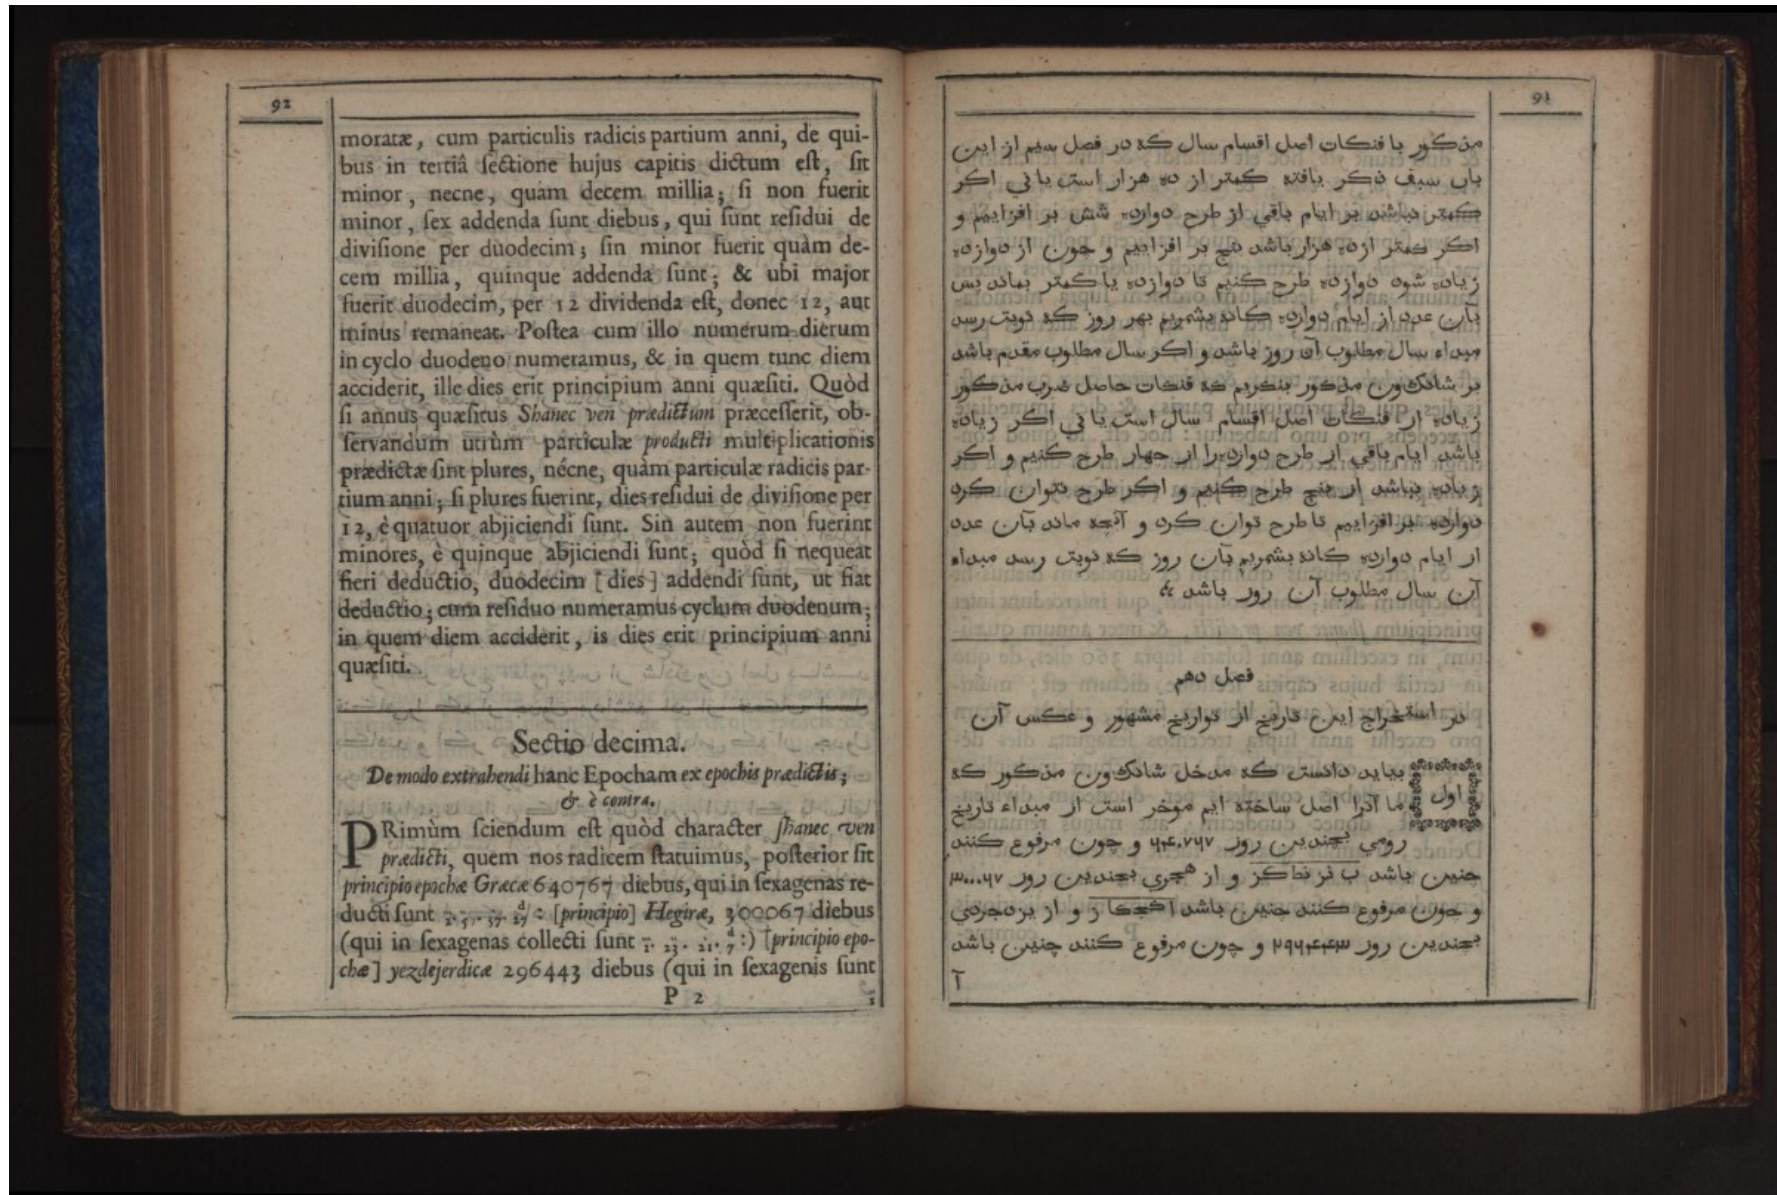 92
moratæ, cum particulis radicis partium anni, de qui-
bus in tertiâ ſectione hujus capitis dictum eſt, ſit
minor, necne, quàm decem millia; ſi non fuerit
minor, ſex addenda ſunt diebus, qui ſunt reſidui de
diviſione per duodecim; ſin minor fuerit quàm de-
cem millia, quinque addenda ſunt; & ubi major
fuerit duodecim, per 12 dividenda eſt, donec 12, aut
minus remaneat. Poſtea cum illo numerum dierum
in cyclo duodeno numeramus, & in quem tunc diem
acciderit, ille dies erit principium anni quæſiti. Quòd
ſi annus quæſitus Shanec ven prædictum præceſſerit, ob-
ſervandum utrùm particulæ producti multiplicationis
prædictæ ſint plures, nécne, quàm particulæ radicis par-
tium anni; ſi plures fuerint, dies reſidui de diviſione per
12, è quatuor abjiciendi ſunt. Sin autem non fuerint
minores, è quinque abjiciendi ſunt; quòd ſi nequeat
fieri deductio, duodecim [dies] addendi ſunt, ut fiat
deductio; cum reſiduo numeramus cyclum duodenum;
in quem diem acciderit, is dies erit principium anni
quæſiti.
Sectio decima.
De modo extrahendi hanc Epocham ex epochis prædictis;
& è contra.
PRimùm ſciendum eſt quòd character ſhanec ven
prædicti, quem nos radicem ſtatuimus, poſterior ſit
principio epochæ Græcæ 640767 diebus, qui in ſexagenas re-
ducti ſunt : [principio] Hegiræ, 300067 diebus
(qui in ſexagenas collecti ſunt 1. 23. 21. 7 :) [principio epo-
chæ] yezdejerdicæ 296443 diebus (qui in ſexagenis ſunt
P 2
1
91
مذكور با فنكات اصل اقسام سال كه در فصل سيم از اين
باب سبق ذكر يافته كمتر از ده هزار است يا ني اكر
كمتر نباشد بر ايام باقي از طرح دوازده شش بر افزاييم و
اكر كمتر ازده هزار باشد پنج بر افزاييم و چون از دوازده
زياده شود دوازده طرح كنيم تا دوازده يا كمتر بماند پس
بآن عدد از ايام دوازده كانه بشمريم بهر روز كه نوبت رسد
مبداء سال مطلوب آن روز باشد و اكر سال مطلوب مقدم باشد
بر شانك ون مذكور بنكريم كه فنكات حاصل ضرب مذكور
زياده از فنكات اصل اقسام سال است يا ني اكر زياده
باشد ايام باقي از طرح دوازده را از چهار طرح كنيم و اكر
زياده نباشد از پنج طرح كنيم و اكر طرح نتوان كرد
دوازده بر افزاييم تا طرح توان كرد و آنچه ماند بآن عدد
از ايام دوازده كانه بشمريم بآن روز كه نوبت رسد مبداء
آن سال مطلوب آن روز باشد
فصل دهم
در استخراج اين تاريخ از تواريخ مشهور و عكس آن
اول
ببايد دانست كه مدخل شانك ون مذكور كه
ما آنرا اصل ساخته ايم موخر است از مبداء تاريخ
رومي بچندين روز ۶۴۰۷۶۷ و چون مرفوع كنند
چنين باشد ب نز نط كز و از هجري بچندين روز ۳۰۰۰۶۷
و چون مرفوع كنند چنين باشد ا كج كا ز و از يزدجردي
بچندين روز ۲۹۶۴۴۳ و چون مرفوع كنند چنين باشد
آ